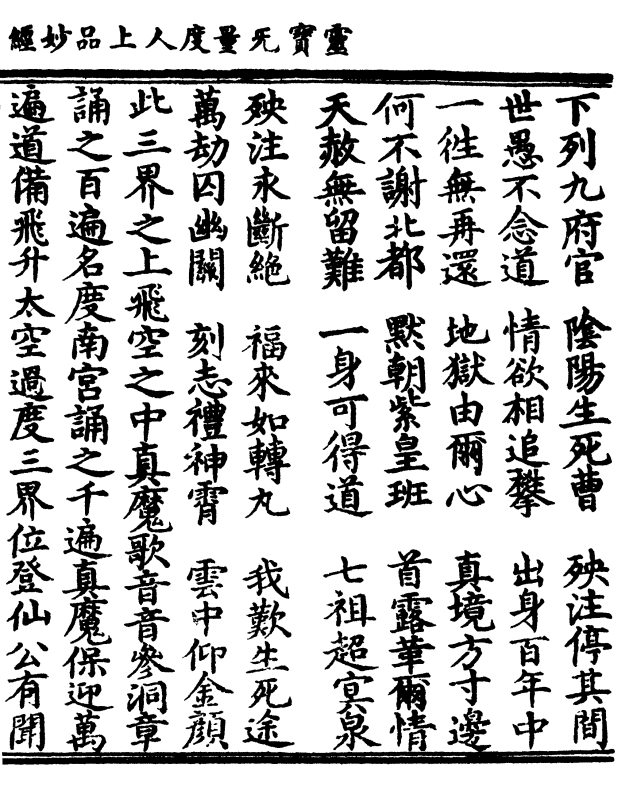 靈寶旡量度人上品妙經
下列九府官　陰陽生死曹　殃注停其間
世愚不念道　情欲相追攀　出身百年中
一徃無再還　地獄由爾心　真境方寸邊
何不謝北都　默朝紫皇班　首露華爾情
天赦無留難　一身可得道　七祖超冥泉
殃注永斷絶　福來如轉丸　我歎生死途
萬劫囚幽關　刻志禮神霄　雲中仰金顔
此三界之上飛空之中真魔歌音音參洞章
誦之百遍名度南宮誦之千遍真魔保迎萬
遍道備飛升太空過度三界位登仙公有聞